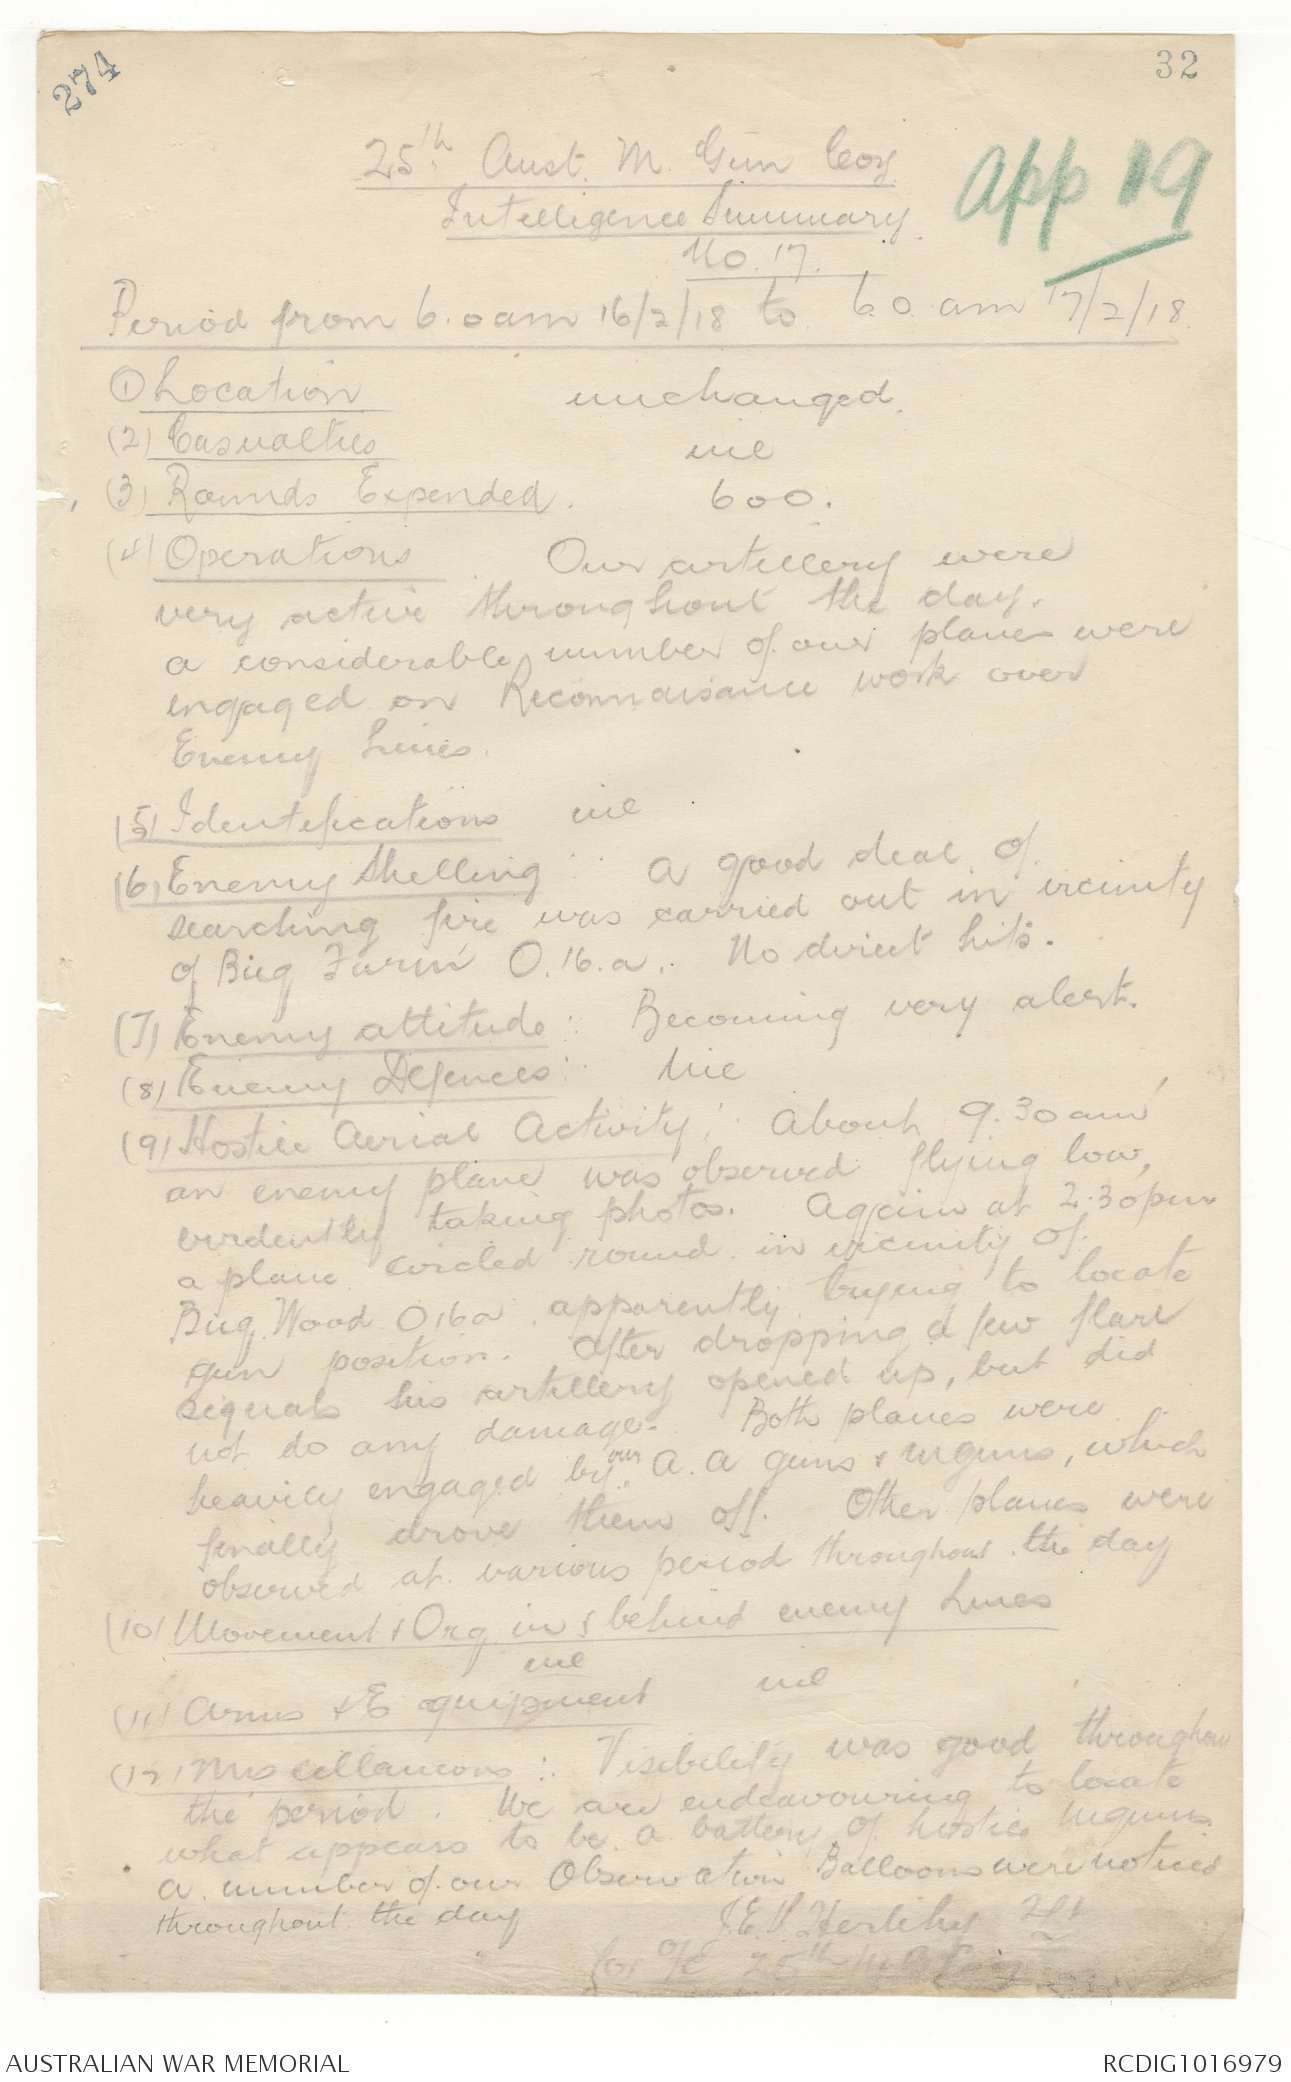 274
32
25th Aust. M. Gun Coy
App 19
Intelligence Summary
No. 17.
Period from 6.0 am 16/2/18 to 6.0. am 17/2/18.
(1) Location unchanged.
(2) Casualties nil
(3) Rounds Expended. 600.
(4) Operations Our artillery were
very active throughout the day.
a considerable number of our planes were
engaged on Reconnaisance work over
Enemy Lines.
(5) Identifications nil
(6) Enemy Shelling: A good deal of
searching fire was carried out in vicinity
of Bug Farm O.16.a. No direct hits.
(7) Enemy attitude: Becoming very alert.
(8) Enemy Defences: Nil
(9) Hostile Aerial Activity: About 9.30 am
an enemy plane was observed flying low,
evidently taking photos. Again at 2.30pm
a plane circled round in vicinity of
Bug Wood O16a apparently trying to locate
gun position. After dropping a few flare
signals his artillery opened up, but did
not do any damage. Both planes were
heavily engaged by our A.A guns & M guns, which
finally drove them off. Other planes were
observed at various period throughout the day
(10) Movement & Org in & behind enemy Lines
nil
(11) Arms & Equipment nil
(12) Miscellaneous: Visibility was good throughout
the period. We are endeavouring to locate
what appears to be a battery of hostile M guns.
A number of our Observation Balloons were noticed
throughout the day
J.E.P. Herlihy Lt
for O/C 25th M.G. Coy
AUSTRALIAN WAR MEMORIAL
RCDIG1016979